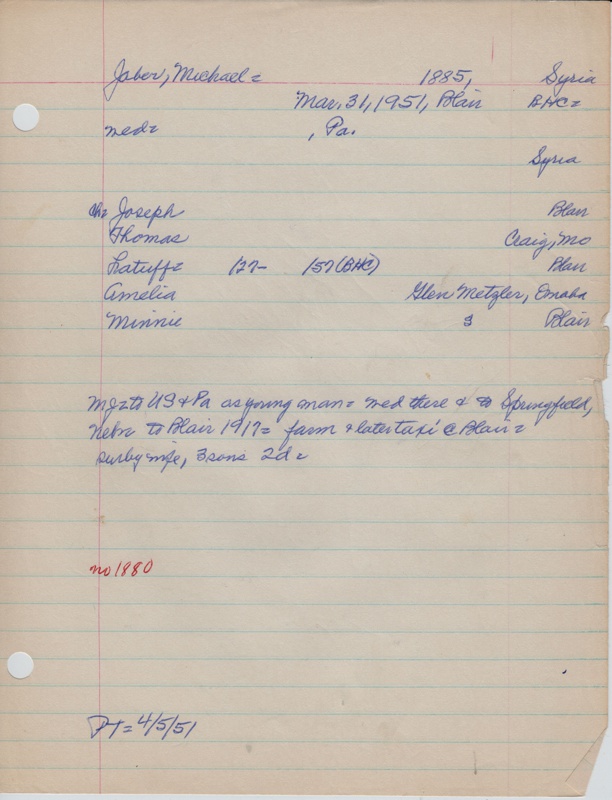 Jaber, Michael = 1885, Syria
Mar. 31, 1951, Blair BHC =
med = , Pa.
Syria
ch = Joseph Blair
Thomas Craig, Mo
Latuff = 127- 157 (BHC) Blair
Amelia Glen Metzler, Omaha
Minnie s Blair
to US & Pa as young man = med there & to Springfield,
Nebr to Blair 1917 = farm & later taxi @ Blair =
sur by wife, 3 sons 2d =
no 1880
PT = 4/5/51